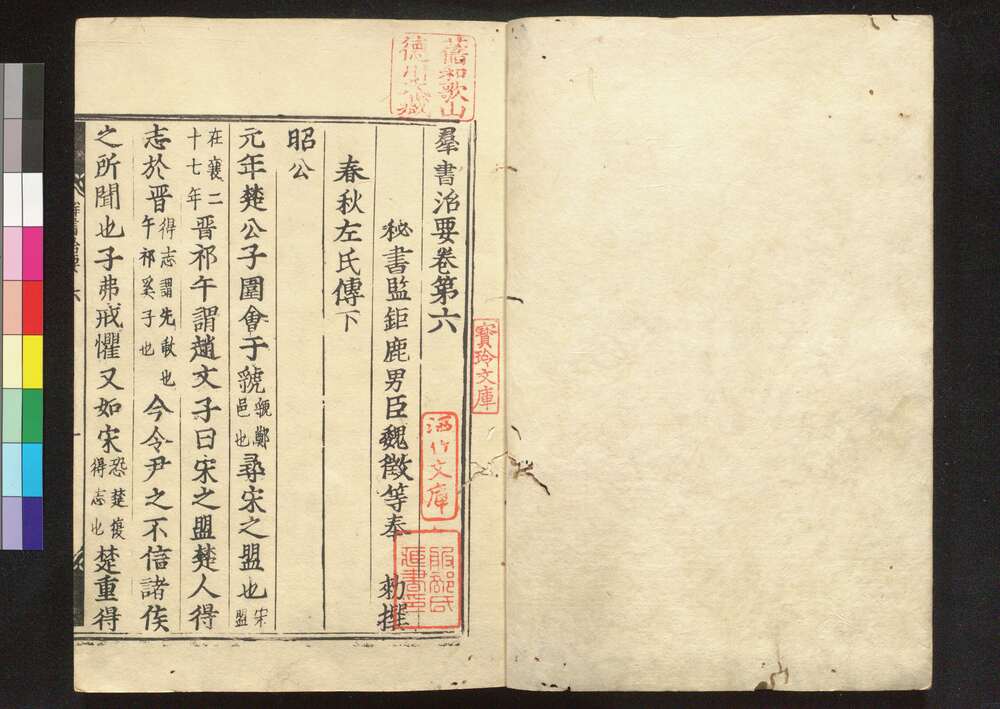 羣書治要卷第六
秘書監鉅鹿男臣魏徵等奉 勑撰
春秋左氏傳下
昭公
元年楚公子圍會于虢虢鄭邑也尋宋之盟也宋盟
在襄二十七年晉祁午謂趙文子曰宋之盟楚人得
志於晉得志謂先歃也午祁奚子也今令尹之不信諸侯
之所聞也子弗戒懼又如宋恐楚復得志也楚重得
舊和歌山德川氏藏
寶玲文庫
酒竹文庫
服部氏
群書治要 六